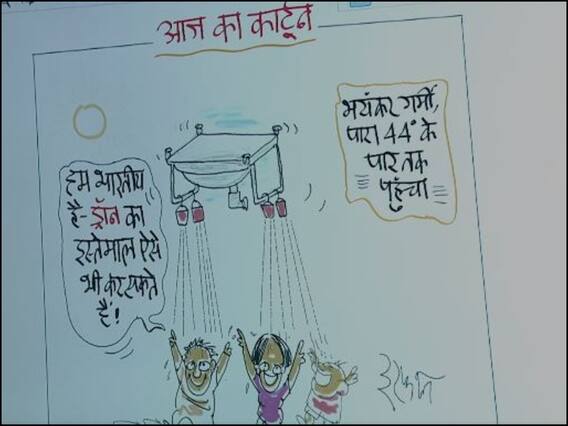 आज का कार्टून
भयंकर गर्मी,
पारा 44° के
पार तक
पहुंचा
हम भारतीय
है- ड्रॉन का
इस्तेमाल ऐसे
भी कर सकते
हैं!
इरफ़ान